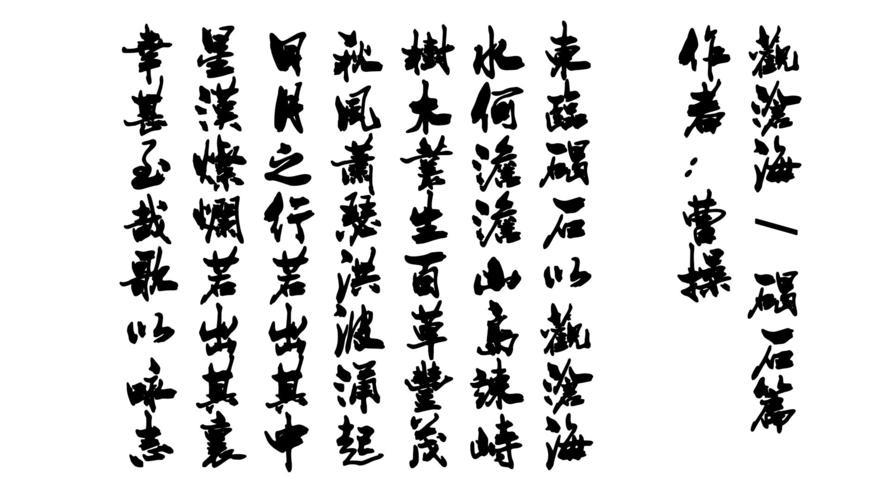 觀滄海一碣石篇
作者：曹操
東臨碣石以觀滄海
水何澹澹山島竦峙
樹木叢生百草豐茂
秋風蕭瑟洪波涌起
日月之行若出其中
星漢燦爛若出其裏
幸甚至哉歌以咏志